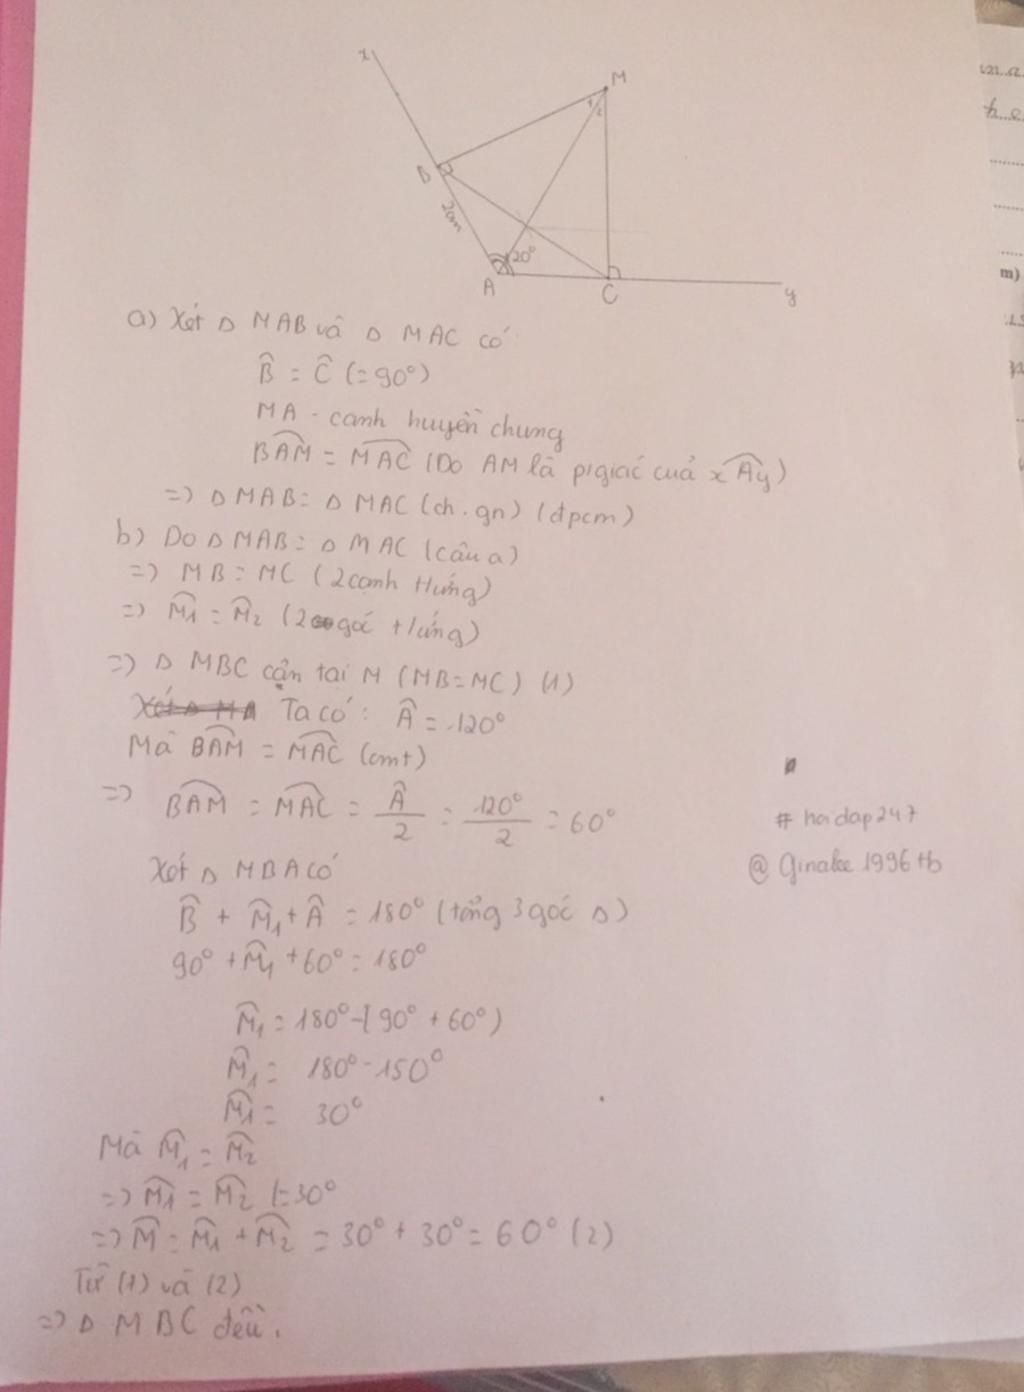 x
M
1 2
B
2cm
120°
A
C
y
a) Xét Δ MAB và Δ MAC có:
B̂ = Ĉ (= 90°)
MA - cạnh huyền chung
BAM = MAC (Do AM là p/giác của xAy)
=> Δ MAB = Δ MAC (ch.gn) (đpcm)
b) Do Δ MAB = Δ MAC (câu a)
=> MB = MC (2 cạnh t/ứng)
=> M̂1 = M̂2 (2 góc t/ứng)
=> Δ MBC cân tại M (MB = MC) (1)
Xét Δ MA Ta có: Â = 120°
Mà BAM = MAC (cmt)
=> BAM = MAC = Â/2 = 120°/2 = 60°
# hoidap247
Xét Δ MBA có
@ Ginalee 1996 tb
B̂ + M̂1 + Â = 180° (tổng 3 góc Δ)
90° + M̂1 + 60° = 180°
M̂1 = 180° - (90° + 60°)
M̂1 = 180° - 150°
M̂1 = 30°
Mà M̂1 = M̂2
=> M̂1 = M̂2 (= 30°
=> M̂ = M̂1 + M̂2 = 30° + 30° = 60° (2)
Từ (1) và (2)
=> Δ MBC đều.
m)